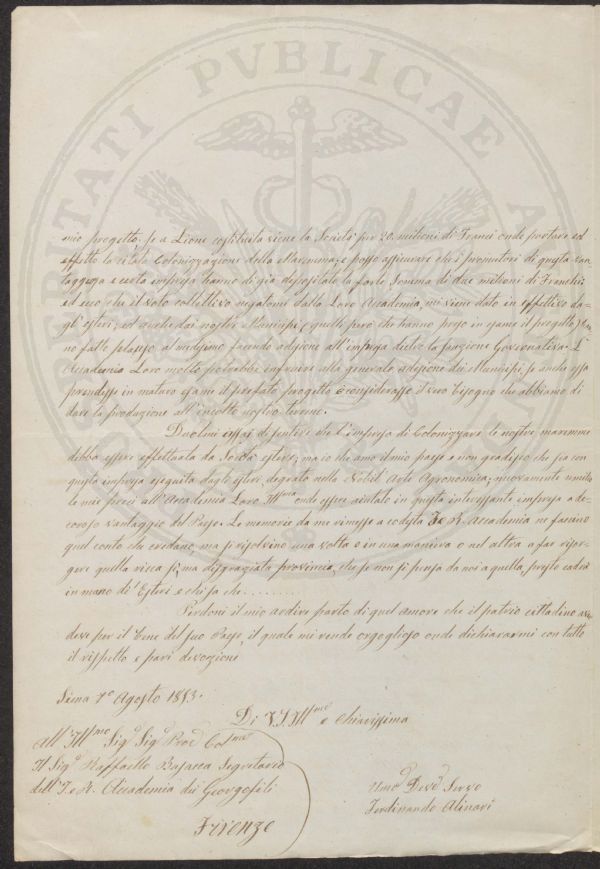 PROSPERITATI PVBLICAE AVGENDAE
mio progetto, se a Lione costituita viene la Società per 20. milioni di Franchi onde portare ad
effetto la citata Colonizzazione della Maremma; e posso assicurare che i promotori di questa van
taggiosa e certa impresa hanno di già depositato la forte somma di due milioni di Franchi;
ed ecco che il voto collettivo negatomi dalla Loro Accademia, mi viene dato in effettivo da-
gl'esteri, ed anche dai nostri Municipi (quelli però che hanno preso in esame il progetto) han
no fatto plauso al medesimo facendo adesione all'impresa dietro la sanzione Governativa. L'
Accademia Loro molto potrebbe influire alla generale adesione dei Municipi, se anche essa
prendesse in maturo esame il prefato progetto e considerasse il vero bisogno che abbiamo di
dare la produzione all'incolto nostro terreno.
Duolmi assai di sentire che l'impresa di Colonizzare le nostre maremme
debba essere effettuata da Società estere; ma io che amo il mio paese e non gradisco che sia con
questa impresa eseguita dagli esteri, degrato nella Nobil Arte Agronomica; nuovamente umilio
le mie preci all'Accademia Loro Ill.ma onde essere aiutato in questa interessante impresa a de-
coroso vantaggio del Paese. Le memorie da me rimesse a codesta I. e R. Accademia ne faccino
quel conto che credano, ma si risolvino una volta o in una maniera o nel altra a far risor-
gere quella ricca sì, ma disgraziata provincia, che se non si pensa da noi a quella, presto cadrà
in mano di Esteri e chi sa che.........
Perdoni il mio ardire parto di quel amore che il patrio cittadino
deve per il bene del suo Paese, il quale mi rende orgoglioso onde dichiararmi con tutto
il rispetto e pari devozione
Siena 7° Agosto 1853.
Di V. S. Ill.ma e Chiarissima
All' Ill.mo Sig.r Sig.r Proc. Col.mo
Il Sig.r Raffaello Busacca Segretario
dell' I. e R. Accademia dei Georgofili
Firenze
Umo. Devo. Servo
Ferdinando Alinari